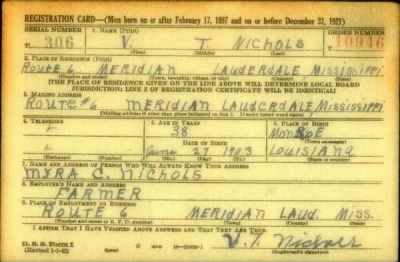 REGISTRATION CARD—(Men born on or after February 17, 1897 and on or before December 31, 1921)
SERIAL NUMBER 1. NAME (Print) ORDER NUMBER
T 306 V. T. NICHOLS 10946
(First) (Middle) (Last)
2. PLACE OF RESIDENCE (Print)
ROUTE 6 MERIDIAN LAUDERDALE, MISSISSIPPI
(Number and street) (Town, township, village, or city) (County) (State)
[THE PLACE OF RESIDENCE GIVEN ON THE LINE ABOVE WILL DETERMINE LOCAL BOARD
JURISDICTION; LINE 2 OF REGISTRATION CERTIFICATE WILL BE IDENTICAL]
3. MAILING ADDRESS
ROUTE #6 MERIDIAN LAUDERDALE, MISSISSIPPI
[Mailing address if other than place indicated on line 2. If same insert word same]
4. TELEPHONE 5. AGE IN YEARS 6. PLACE OF BIRTH
38 MONROE
DATE OF BIRTH (Town or county)
June 27 1903 LOUISIANA
(Exchange) (Number) (Mo.) (Day) (Yr.) (State or country)
7. NAME AND ADDRESS OF PERSON WHO WILL ALWAYS KNOW YOUR ADDRESS
MYRA C. NICHOLS
8. EMPLOYER'S NAME AND ADDRESS
FARMER
9. PLACE OF EMPLOYMENT OR BUSINESS
ROUTE 6 MERIDIAN LAUD. MISS.
(Number and street or R. F. D. number) (Town) (County) (State)
I AFFIRM THAT I HAVE VERIFIED ABOVE ANSWERS AND THAT THEY ARE TRUE.
D. S. S. Form 1
V. T. Nichols
(Registrant's signature)